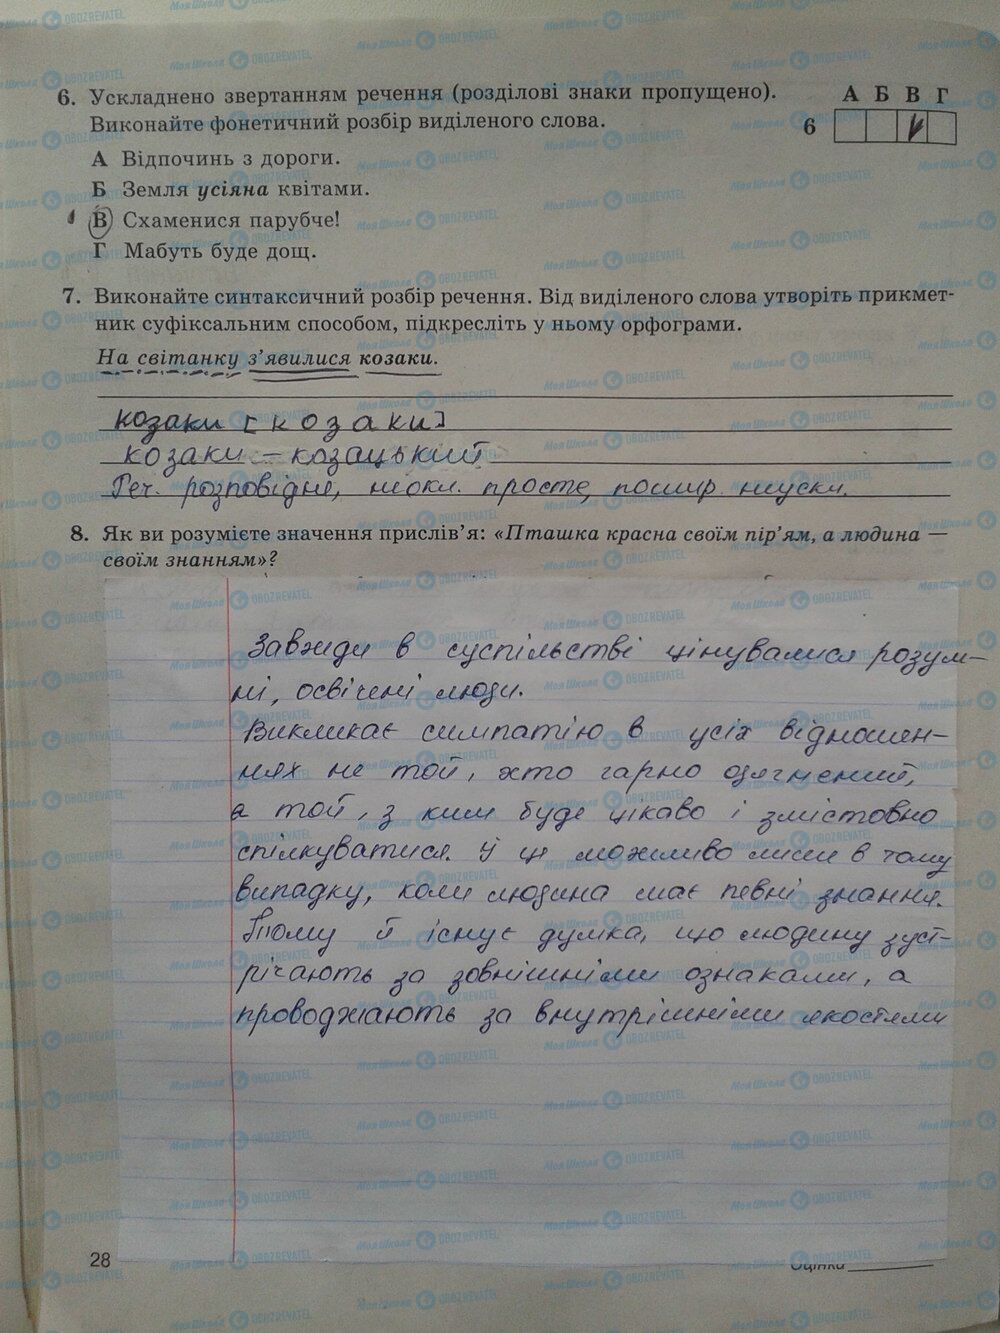 6. Ускладнено звертанням речення (розділові знаки пропущено).
Виконайте фонетичний розбір виділеного слова.
А Б В Г
6
А Відпочинь з дороги.
Б Земля усіяна квітами.
В Схаменися парубче!
Г Мабуть буде дощ.
7. Виконайте синтаксичний розбір речення. Від виділеного слова утворіть прикмет-
ник суфіксальним способом, підкресліть у ньому орфограми.
На світанку з’явилися козаки.
козаки [козаки]
козаки – козацький
Реч. розповідне, неокл. просте, пошир.
8. Як ви розумієте значення прислів’я: «Пташка красна своїм пір’ям, а людина —
своїм знанням»?
Завжди в суспільстві цінувалися розум-
ні, освічені люди.
Викликає симпатію в усіх відношен-
нях не той, хто гарно одягнений,
а той, з ким буде цікаво і змістовно
спілкуватися. й це можливо лише в тому
випадку, коли людина має певні знання.
Тому й існує думка, що людину зуст-
річають за зовнішніми ознаками, а
проводжають за внутрішніми якостями
28
Оцінка
Моя Школа OBOZREVATEL